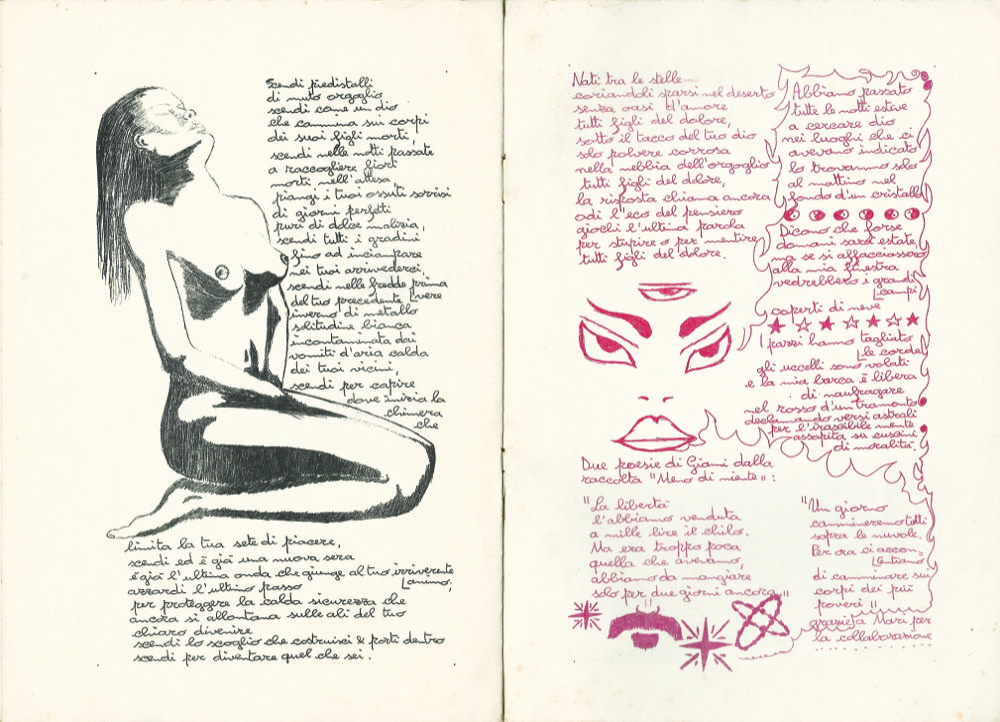 Scendi piedistalli
di muto orgoglio
scendi come un dio
che cammina sui corpi
dei suoi figli morti,
scendi nelle notti passate
a raccogliere fiori
morti nell'attesa
piangi i tuoi ossuti sorrisi
di giorni perfetti
puri di dolce malizia,
scendi tutti i gradini
fino ad inciampare
nei tuoi arrivederci,
scendi nelle fredde prima
del tuo precedente vere
inverno di metallo
solitudine bianca
incontaminata dai
vomiti d'aria calda
dei tuoi vicini,
scendi per capire
dove inizia la
chimera
che
limita la tua sete di piacere,
scendi ed è già una nuova sera
è già l'ultima onda che giunge al tuo irriverente
azzardi l'ultimo passo animo;
per proteggere la calda sicurezza che
ancora si allontana sulle ali del tuo
chiaro divenire
scendi lo scoglio che costruisci & porti dentro
scendi per diventare quel che sei.
Nati tra le stelle—
coriandoli sparsi nel deserto
senza oasi d'amore
tutti figli del dolore,
sotto il tacco del tuo dio
solo polvere corrosa
nella nebbia dell'orgoglio
tutti figli del dolore,
la risposta chiama ancora
odi l'eco del pensiero
giochi l'ultima parola
per stupire o per mentire
tutti figli del dolore.
Abbiamo passato
tutte le notti estive
a cercare dio
nei luoghi che ci
avevano indicato
lo trovammo solo
al mattino nel
fondo d'un cristallo
Dicono che forse
domani sarà estate,
ma se si affacciassero
alla mia finestra
vedrebbero i grandi
campi
coperti di neve
I passi hanno tagliato
le corde
gli uccelli sono volati
e la mia barca è libera
di naufragare
nel rosso d'un tramonto
declamando versi astrali
per l'irascibile mente
assopita su cuscini
di moralità.
Due poesie di Gianni dalla
raccolta "Meno di niente":
"La libertà
l'abbiamo venduta
a mille lire il chilo.
Ma era troppo poca
quella che avevamo,
abbiamo da mangiare
solo per due giorni ancora"
"Un giorno
cammineremo tutti
sopra le nuvole.
Per ora ci accon=
tentiamo
di camminare sui
corpi dei più
poveri"
grazie a Mari per
la collaborazione